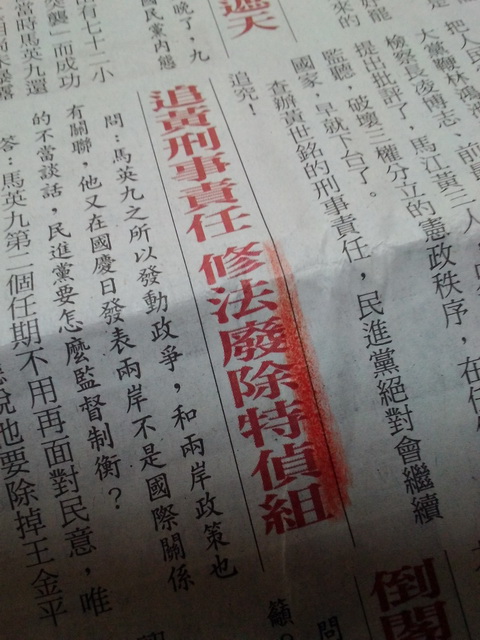 把人民
大黨鞭林鴻
檢察長凌博志、前
提出批評了，馬江黃三人
監聽，破壞三權分立的憲政秩序，在任
國家，早就下台了。
查辦黃世銘的刑事責任，民進黨絕對會繼續
追究！
遮天
追黃刑事責任 修法廢除特偵組
問：馬英九之所以發動政爭，和兩岸政策也
有關聯，他又在國慶日發表兩岸不是國際關係
的不當談話，民進黨要怎麼監督制衡？
答：馬英九第二個任期不用再面對民意，唯
說他要除掉王金平
晚了，九
國民黨內態
有七十二小
襲」而成功
當時馬英九還
倒閣
問
籲